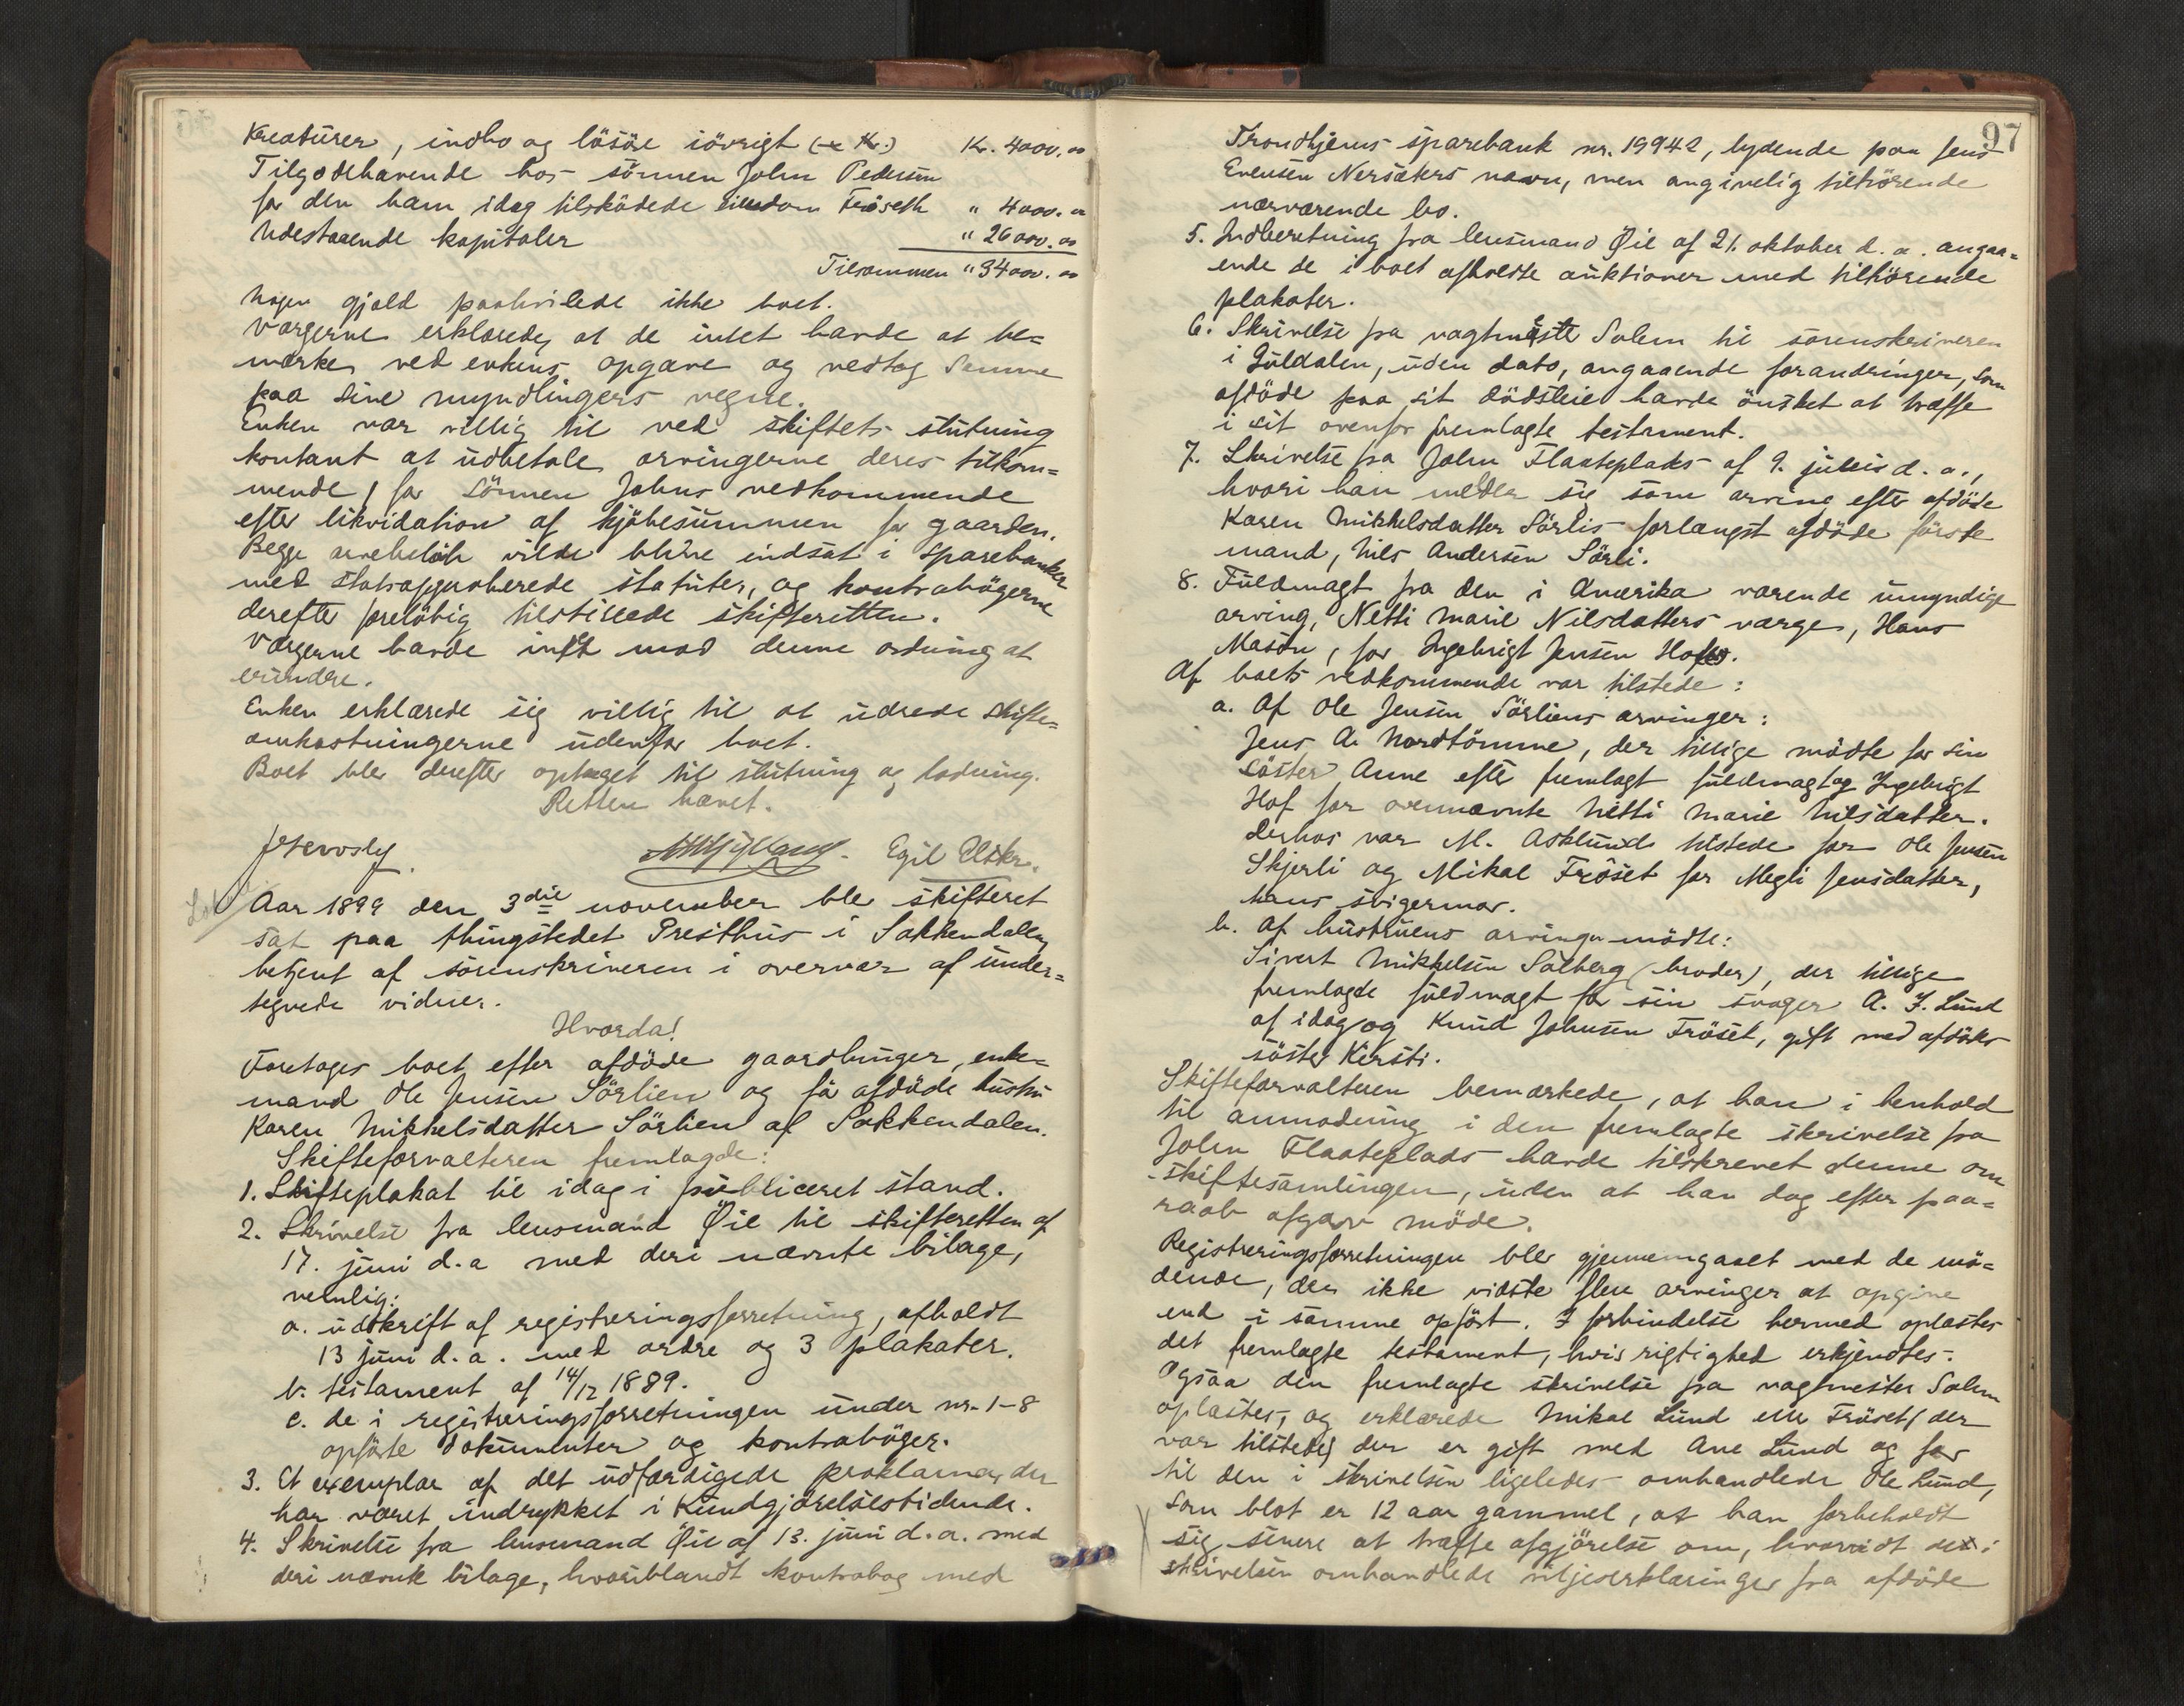 Kreaturer, indbo og lösöre iövrigt (÷ Kr.) Kr. 4000.00
Tilgodehavende hos sönnen John Pedersen
for den ham idag tilsködede eiendom Fröseth " 4000.00
Udestaaende kapitaler " 26000.00
Tilsammen " 34000.00
Nogen gjæld paahvilede ikke boet.
Værgerne erklærede, at de intet havde at be=
mærke ved enkens opgave og vedtog samme
paa sine myndlingers vegne.
Enken var villig til ved skiftets slutning
kontant at udbetale arvingerne deres tilkom=
mende, for sönnen Johns vedkommende
efter likvidation af kjöbesummen for gaarden.
Begge arvebelöb vilde blive indsat i sparebanker
med statsapproberede statuter, og kontrabögerne
derefter forelöbig tilstillede skifteretten.
Værgerne havde intet mod denne ordning at
erindre.
Enken erklærede sig villig til at udrede skifte=
omkostningerne udenfor boet.
Boet blev derefter optaget til slutning og lodning.
Retten hævet.
Egil
Aar 1899 den 3die november blev skifteret
sat paa thingstedet Presthus i Sokkendalen
betjent af sörenskriveren i overvær af under=
tegnede vidner.
Hvorda!
Foretoges boet efter afdöde gaardbruger, enke=
mand Ole Jensen Sörlien og för afdöde hustru
Karen Mikkelsdatter Sörlien af Sokkendalen.
Skifteforvalteren fremlagde:
1. Skifteplakat til idag i publiceret stand.
2. Skrivelse fra lensmand Öie til skifteretten af
17. juni d.a med deri nævnte bilage,
nemlig:
a. udskrift af registreringsforretning, afholdt
13 juni d.a. med ordre og 3 plakater.
b. testament af 14/12 1889.
c. de i registreringsforretningen under nr. 1-8
opförte dokumenter og kontraböger.
3. Et exemplar af det udfærdigede proklama, der
har været indrykket i Kundgjörelsestidende.
4. Skrivelse fra lensmand Öie af 13. juni d.a. med
deri nævnte bilage, hvoriblandt kontrabog med
97
Trondhjems sparebank nr. 19942, lydende paa Jens
Evensen Nersæters navn, men angivelig tilhörende
nærværende bo.
5. Indberetning fra lensmand Öie af 21. oktober d.a. angaa=
ende de i boet afholdte auktioner med tilhörende
plakater.
6. Skrivelse fra vagtmester Solem til sorenskriveren
i Guldalen, uden dato, angaaende forandringer, som
afdöde paa sit dödsleie havde önsket at træffe
i sit ovenfor fremlagte testament.
7. Skrivelse fra John Flaateplads af 9. juli d.a.,
hvori han melder sig som arving efter afdöde
Karen Mikkelsdatter Sörlis forlængst afdöde förste
mand, Nils Andersen Sörli.
8. Fuldmagt fra den i Amerika værende umyndige
arving, Netti Marie Nilsdatters værge, Hans
Mason, for Ingebrigt Jensen Hof.
Af boets vedkommende var tilstede:
a. Af Ole Jensen Sörliens arvinger:
Jens A. Nordtömme, der tillige mödte for sin
söster Anne efter fremlagt fuldmagt og Ingebrigt
Hof for ovennævnte Netti Marie Nilsdatter.
Derhos var M. Asklund tilstede for Ole Jensen
Skjerli og Mikal Fröset for Megli Jensdatter,
hans svigermor.
b. Af hustruens arvinger mödte:
Sivert Mikkelsen Solberg (broder), der tillige
fremlagde fuldmagt for sin svoger A. J. Lund
af idag og Knud Johnsen Fröset, gift med afdödes
söster Kirsti.
Skifteforvalteren bemærkede, at han i henhold
til anmodning i den fremlagte skrivelse fra
John Flaateplads havde tilskrevet denne om
skiftesamlingen, uden at han dog efter paa=
raab afgav möde.
Registreringsforretningen blev gjennemgaaet med de mö=
dende, der ikke vidste flere arvinger at opgive
end i samme opfört. I forbindelse hermed oplæstes
det fremlagte testament, hvis rigtighed erkjendtes.
Ogsaa den fremlagte skrivelse fra vagtmester Solem
oplæstes, og erklærede Mikal Lund eller Fröset (der
var tilstede) der er gift med Ane Lund og far
til den i skrivelsen ligeledes omhandlede Ole Lund,
som blot er 12 aar gammel, at han forbeholdt
sig senere at træffe afgjörelse om, hvorvidt de i
skrivelsen omhandlede viljeserklæringer fra afdöde